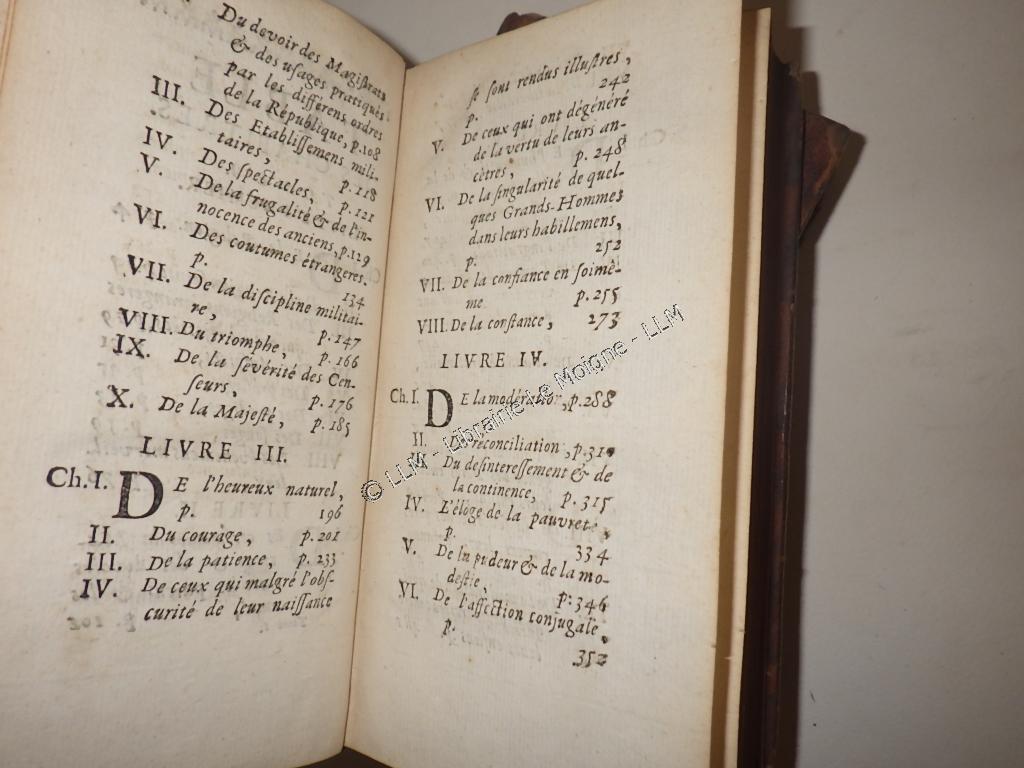 Du devoir des Magistrats
& des usages pratiqués
par les differens ordres
de la République, p.108
III. Des Etablissemens mili-
taires, p. 118
IV. Des spectacles, p. 121
V. De la frugalité & de l'in-
nocence des anciens, p.129
VI. Des coutumes étrangeres,
p. 134
VII. De la discipline militai-
re, p.147
VIII. Du triomphe, p. 166
IX. De la sévérité des Cen-
seurs, p. 176
X. De la Majesté, p. 185
LIVRE III.
Ch. I. DE l'heureux naturel,
p. 196
II. Du courage, p. 201
III. De la patience, p. 233
IV. De ceux qui malgré l'obs-
curité de leur naissance
se sont rendus illustres,
p. 242
V. De ceux qui ont dégénéré
de la vertu de leurs an-
cètres, p. 248
VI. De la singularité de quel-
ques Grands-Hommes
dans leurs habillemens,
p. 252
VII. De la confiance en soimê-
me p. 255
VIII. De la constance, 273
LIVRE IV.
Ch. I. DE la moderation, p.288
II. De réconciliation, p.310
III. Du desinteressement & de
la continence, p. 315
IV. L'éloge de la pauvreté,
p. 334
V. De la pudeur & de la mo-
destie, p. 346
VI. De l'affection conjugale,
p. 352
© LLM - Librairie Le Moigne - LLM